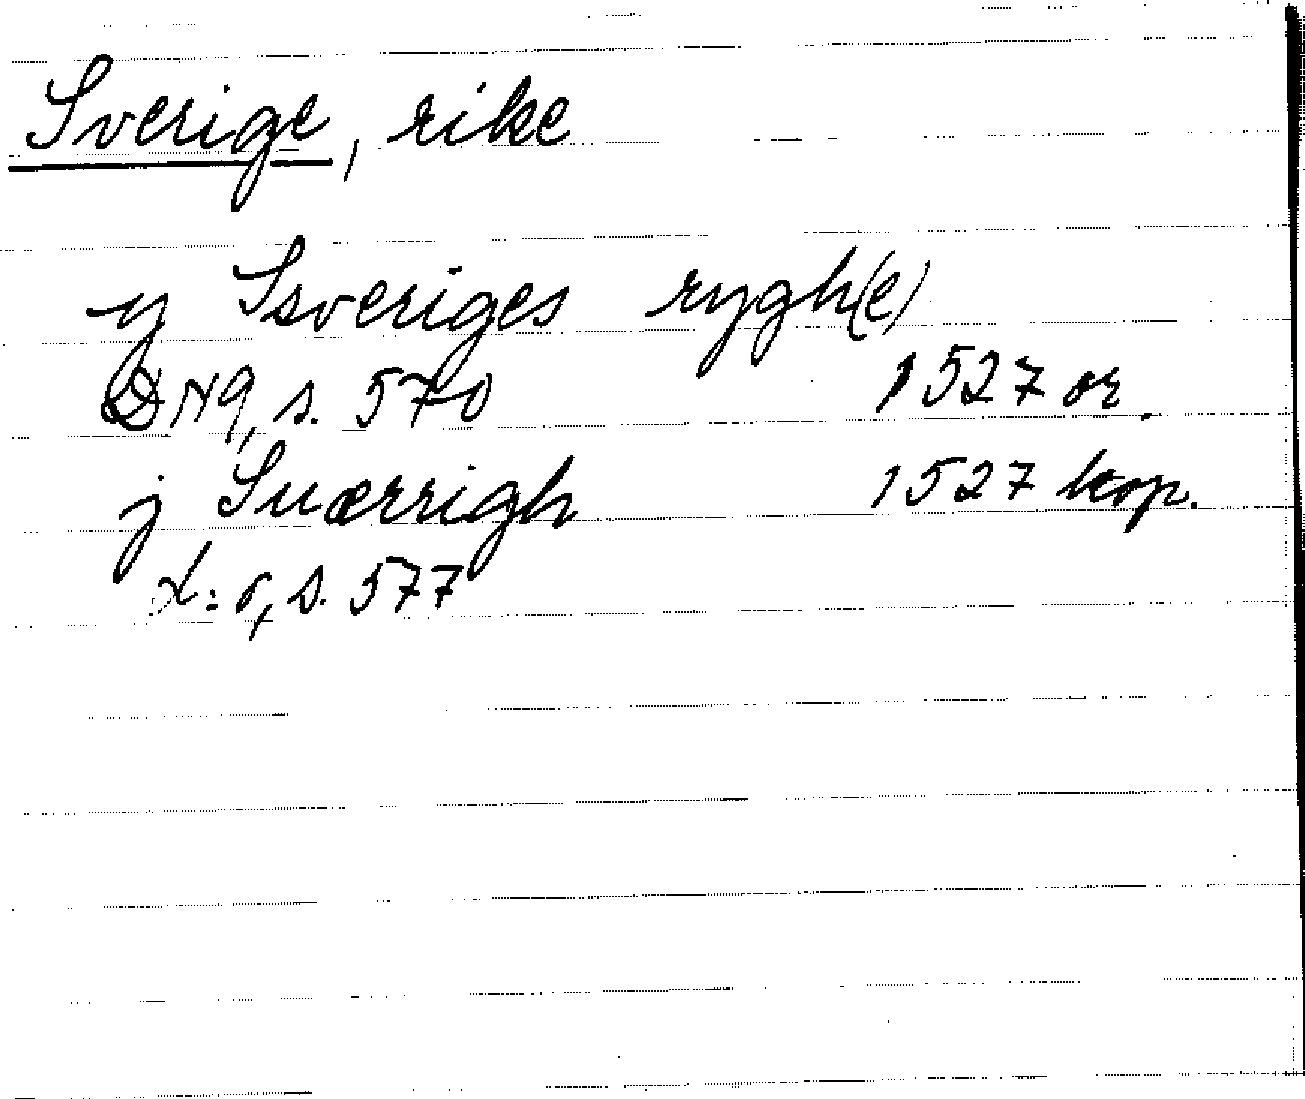 Sverige, rike
y Ssveriges rygh(e)
DN9, s. 570 1527 or.
j Suærrigh 1527 kop.
s. 577